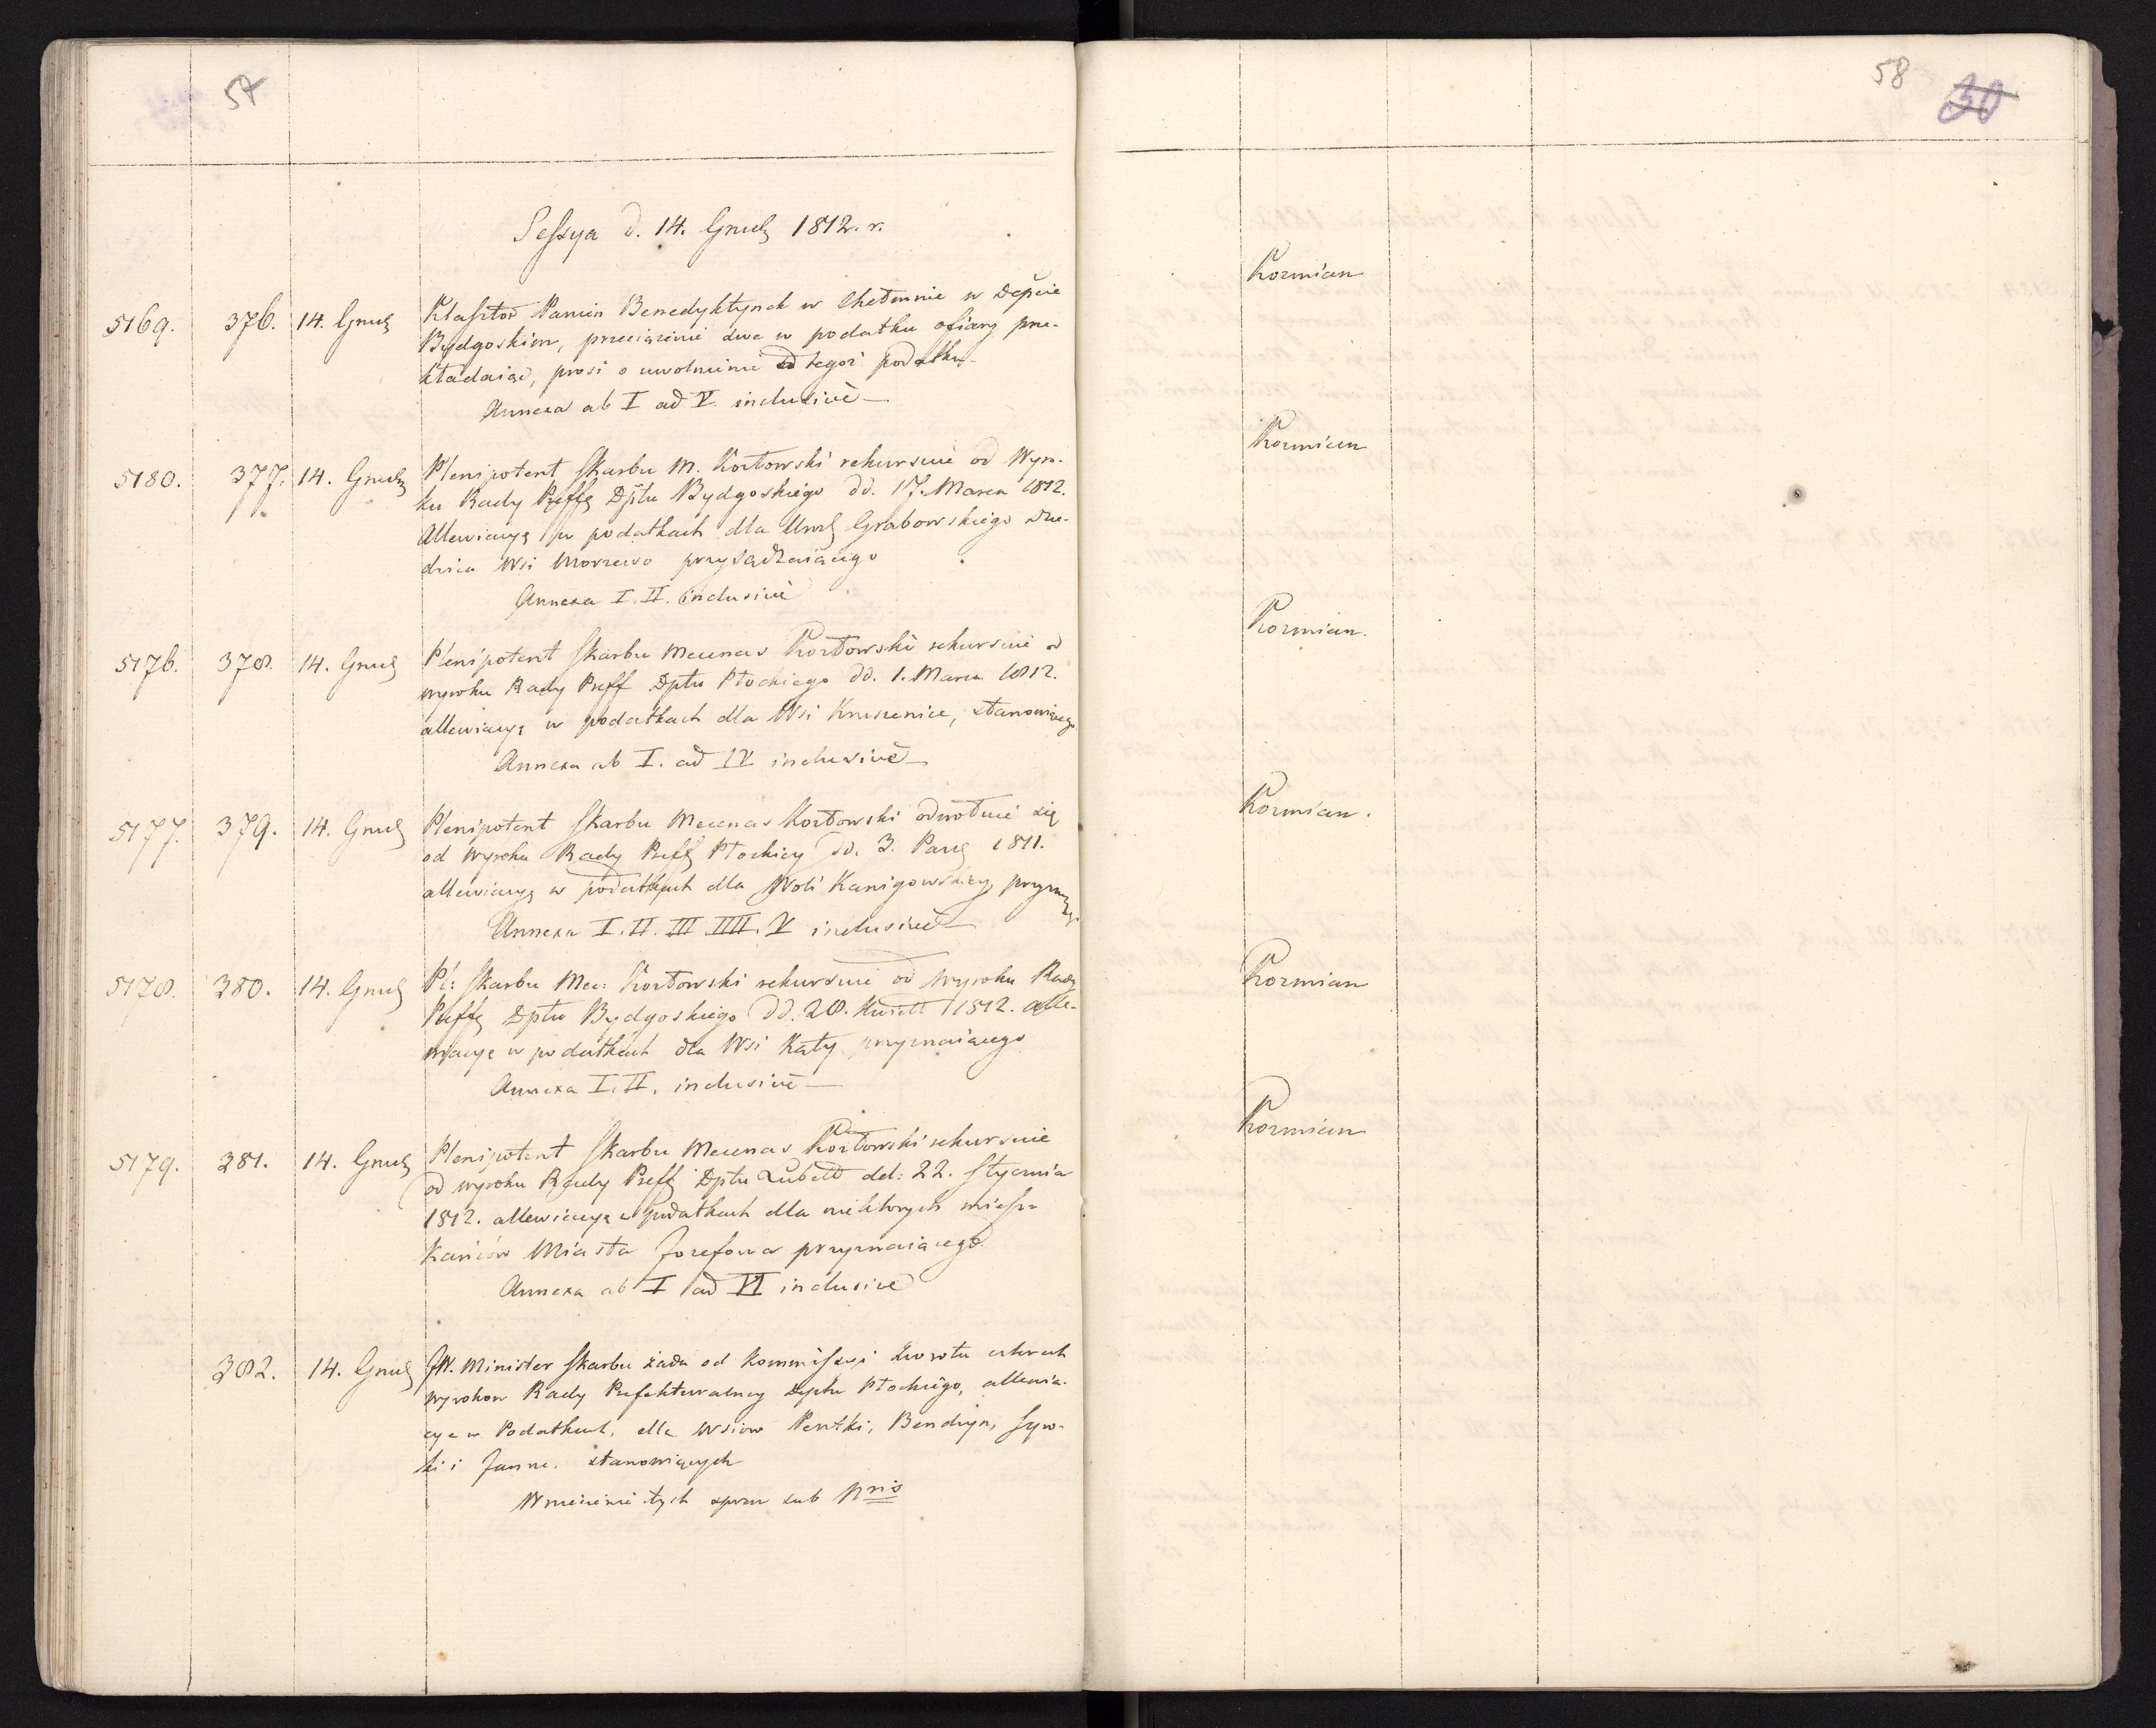 57
58
30
Sessya d. 14. Grud 1812. r.
5169. 376. 14. Grud Klasztor Panien Benedyktynek w Chełmnie w Depcie
Bydgoskim, przeciążenie swe w podatku ofiary prze-
kładaiąc, prosi o uwolnienie od tegoż podatku
Annexa ab I ad V. inclusive
Kozmian
5180. 377. 14. Grud Plenipotent Skarbu M. Kozłowski rekursuie od Wyro-
ku Rady Preff Dptu Bydgoskiego dd. 17. Marca 1812.
Allewiacyą w podatkach dla Grabowskiego Dzie-
dzica Wsi Morzewo przysądzaiącego
Annexa I. II. inclusive
Kozmian
5176. 378. 14. Grud Plenipotent Skarbu Mecenas Kozłowski rekursuie od
wyroku Rady Preff Dptu Płockiego dd. 1. Marca 1812.
allewiacyą w podatkach dla Wsi stanowiącego
Annexa ab I. ad IV inclusive
Kozmian.
5177. 379. 14. Grud Plenipotent Skarbu Mecenas Kozłowski odwołuie się
od wyroku Rady Preff Płockiey dd. 3. Paźd 1811.
allewiacyą w podatkach dla Woli Kanigowskiey
Annexa I. II. III. IIII. V inclusive
Kozmian.
5178. 380. 14. Grud Pl: Skarbu Mec: Kozłowski rekursuie od wyroku Rady
Preff Dptu Bydgoskiego dd. 28. Kwiet 1812. alle-
wiacyę w podatkach dla Wsi Kąty przyznaiącego
Annexa I. II. inclusive
Kozmian
5179. 381. 14. Grud Plenipotent Skarbu Mecenas Kozłowski rekursuie
od wyroku Rady Preff Dptu Lubell dd: 22. Stycznia
1812. allewiacyą w podatkach dla niektorych miesz-
kańców Miasta Jozefowa przyznaiącego
Annexa ab I ad VI inclusive
Kozmian
382. 14. Grud JW. Minister Skarbu żąda od Kommissyi zwrotu czterech
wyrokow Rady Prefekturalney Dptu Płockiego, allewia-
cye w Podatkach, dla wsiow Pentki, Bendzyn,
ki i stanowiących
Wniesienie tych spraw sub Nris